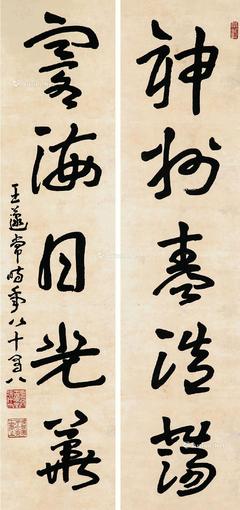 神州春浩蕩
寰海日光華
王蘧常時年八十又八